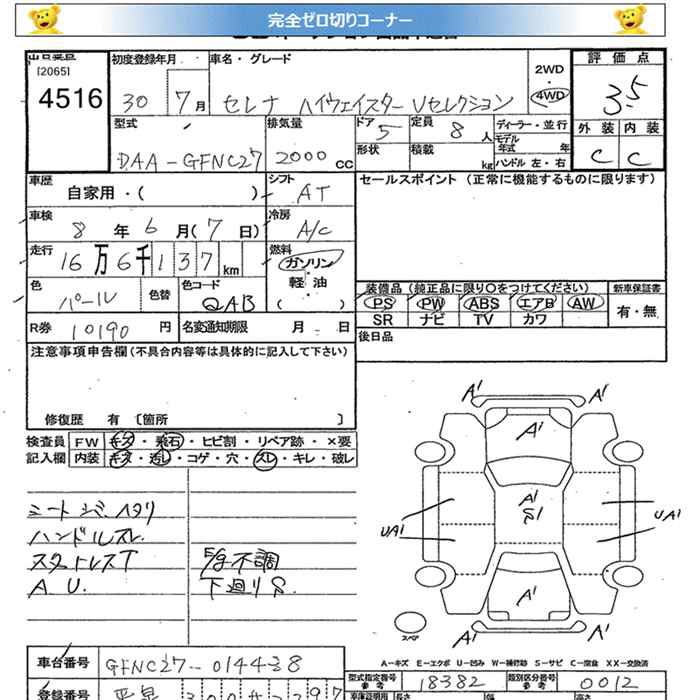 完全ゼロ切りコーナー
出品番号
[2065]
4516
初度登録年月
30 7月
車名・グレード
セレナ ハイウェイスター Vセレクション
2WD
・
4WD
評価点
3.5
外装 内装
C C
型式
DAA-GFNC27
排気量
2000 cc
ドア
5
定員
8 人
形状
積載
kg
ディーラー・並行
モデル年式 年
ハンドル 左・右
車歴
自家用・( )
シフト
AT
セールスポイント (正常に機能するものに限ります)
車検
8年 6月 (7日)
冷房
A/C
走行
16万6千137km
燃料
ガソリン
軽・油
( )
色
パール
色替
色コード
QAB
R券 10190 円
名変通知期限 月 日
装備品 (純正品に限り○をつけてください)
PS PW ABS エアB AW
SR ナビ TV カワ
新車保証書
有・無
後日品
注意事項申告欄 (不具合内容等は具体的に記入して下さい)
修復歴 有 〔箇所 〕
検査員記入欄
FW キズ・飛石・ヒビ割・リペア跡・×要
内装 キズ・汚レ・コゲ・穴・スレ・キレ・破レ
シートシワ. ヘタリ
ハンドルスレ.
スタットレスT
A U.
E/g不調
下廻りS.
A1 A1
A1
A1
S1
UA1 UA1
A1
A1 A1
スペア
A-キズ E-エクボ U-凹み W-補修跡 S-サビ C-腐食 XX-交換済
車台番号 GFNC27-014438
型式指定番号 18382
類別区分番号 0012
登録番号
車庫証明用 長さ 幅 高さ